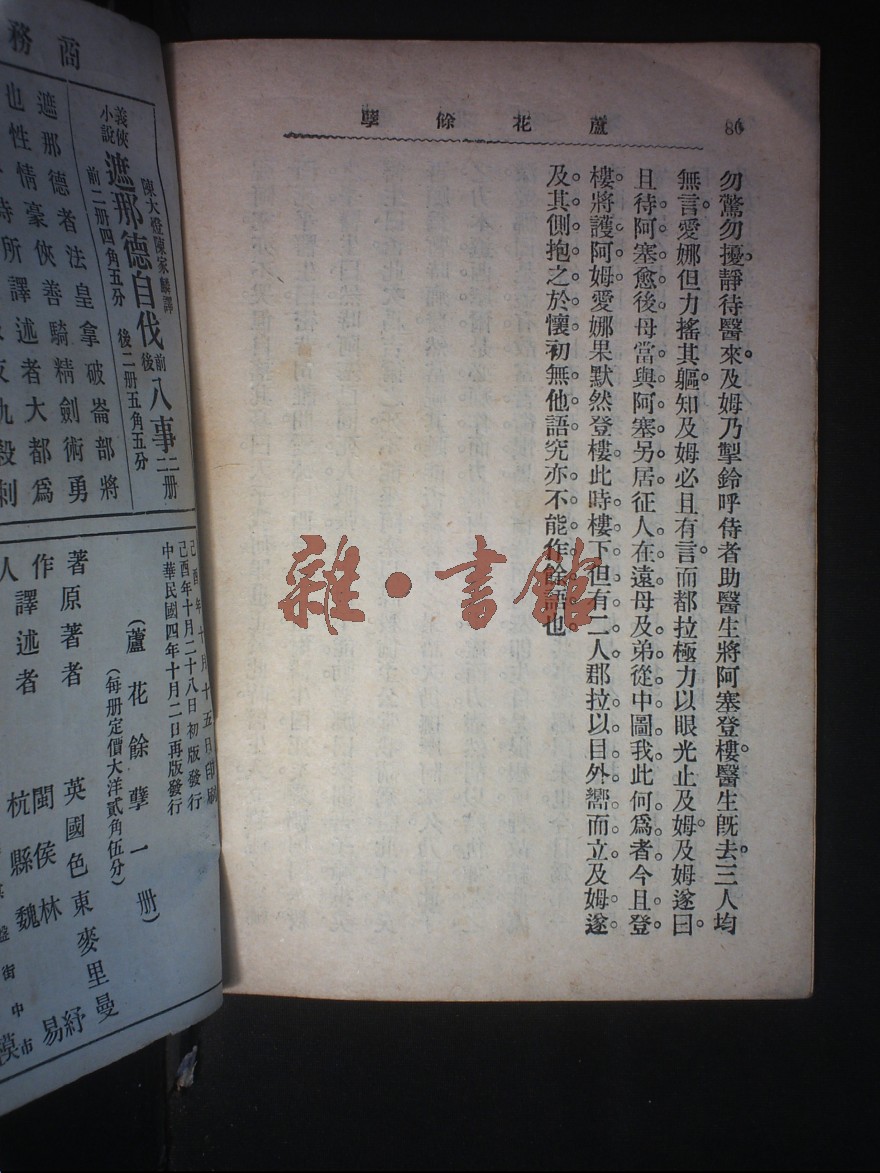 86
蘆花餘孽
勿驚勿擾。靜待醫來。及姆乃掣鈴呼侍者助醫生將阿塞登樓。醫生既去。三人均
無言。愛娜但力搖其軀。知及姆必且有言。而都拉極力以眼光止及姆。及姆遂曰
且待阿塞愈後。母當與阿塞另居。征人在遠。母及弟從中圖我。此何爲者。今且登
樓。將護阿姆。愛娜果默然登樓。此時樓下但有二人。郡拉以目外嚮而立。及姆遂
及其側。抱之於懷。初無他語。究亦不能作餘語也。
雜·書館
商務
義俠小說
遮那德自伐前後八事二册
陳大燈陳家麟譯
前二册四角五分
後二册五角五分
遮那德者法皇拿破崙部將
也性情豪俠善騎精劍術勇
所譯述者大都爲
己酉年十月十五日印刷
己酉年十月二十八日初版發行
中華民國四年十月二日再版發行
(蘆花餘孽一册)
(每册定價大洋貳角伍分)
原著者 英國色東麥里曼
譯述者 閩侯林紓
杭縣魏易
街中市